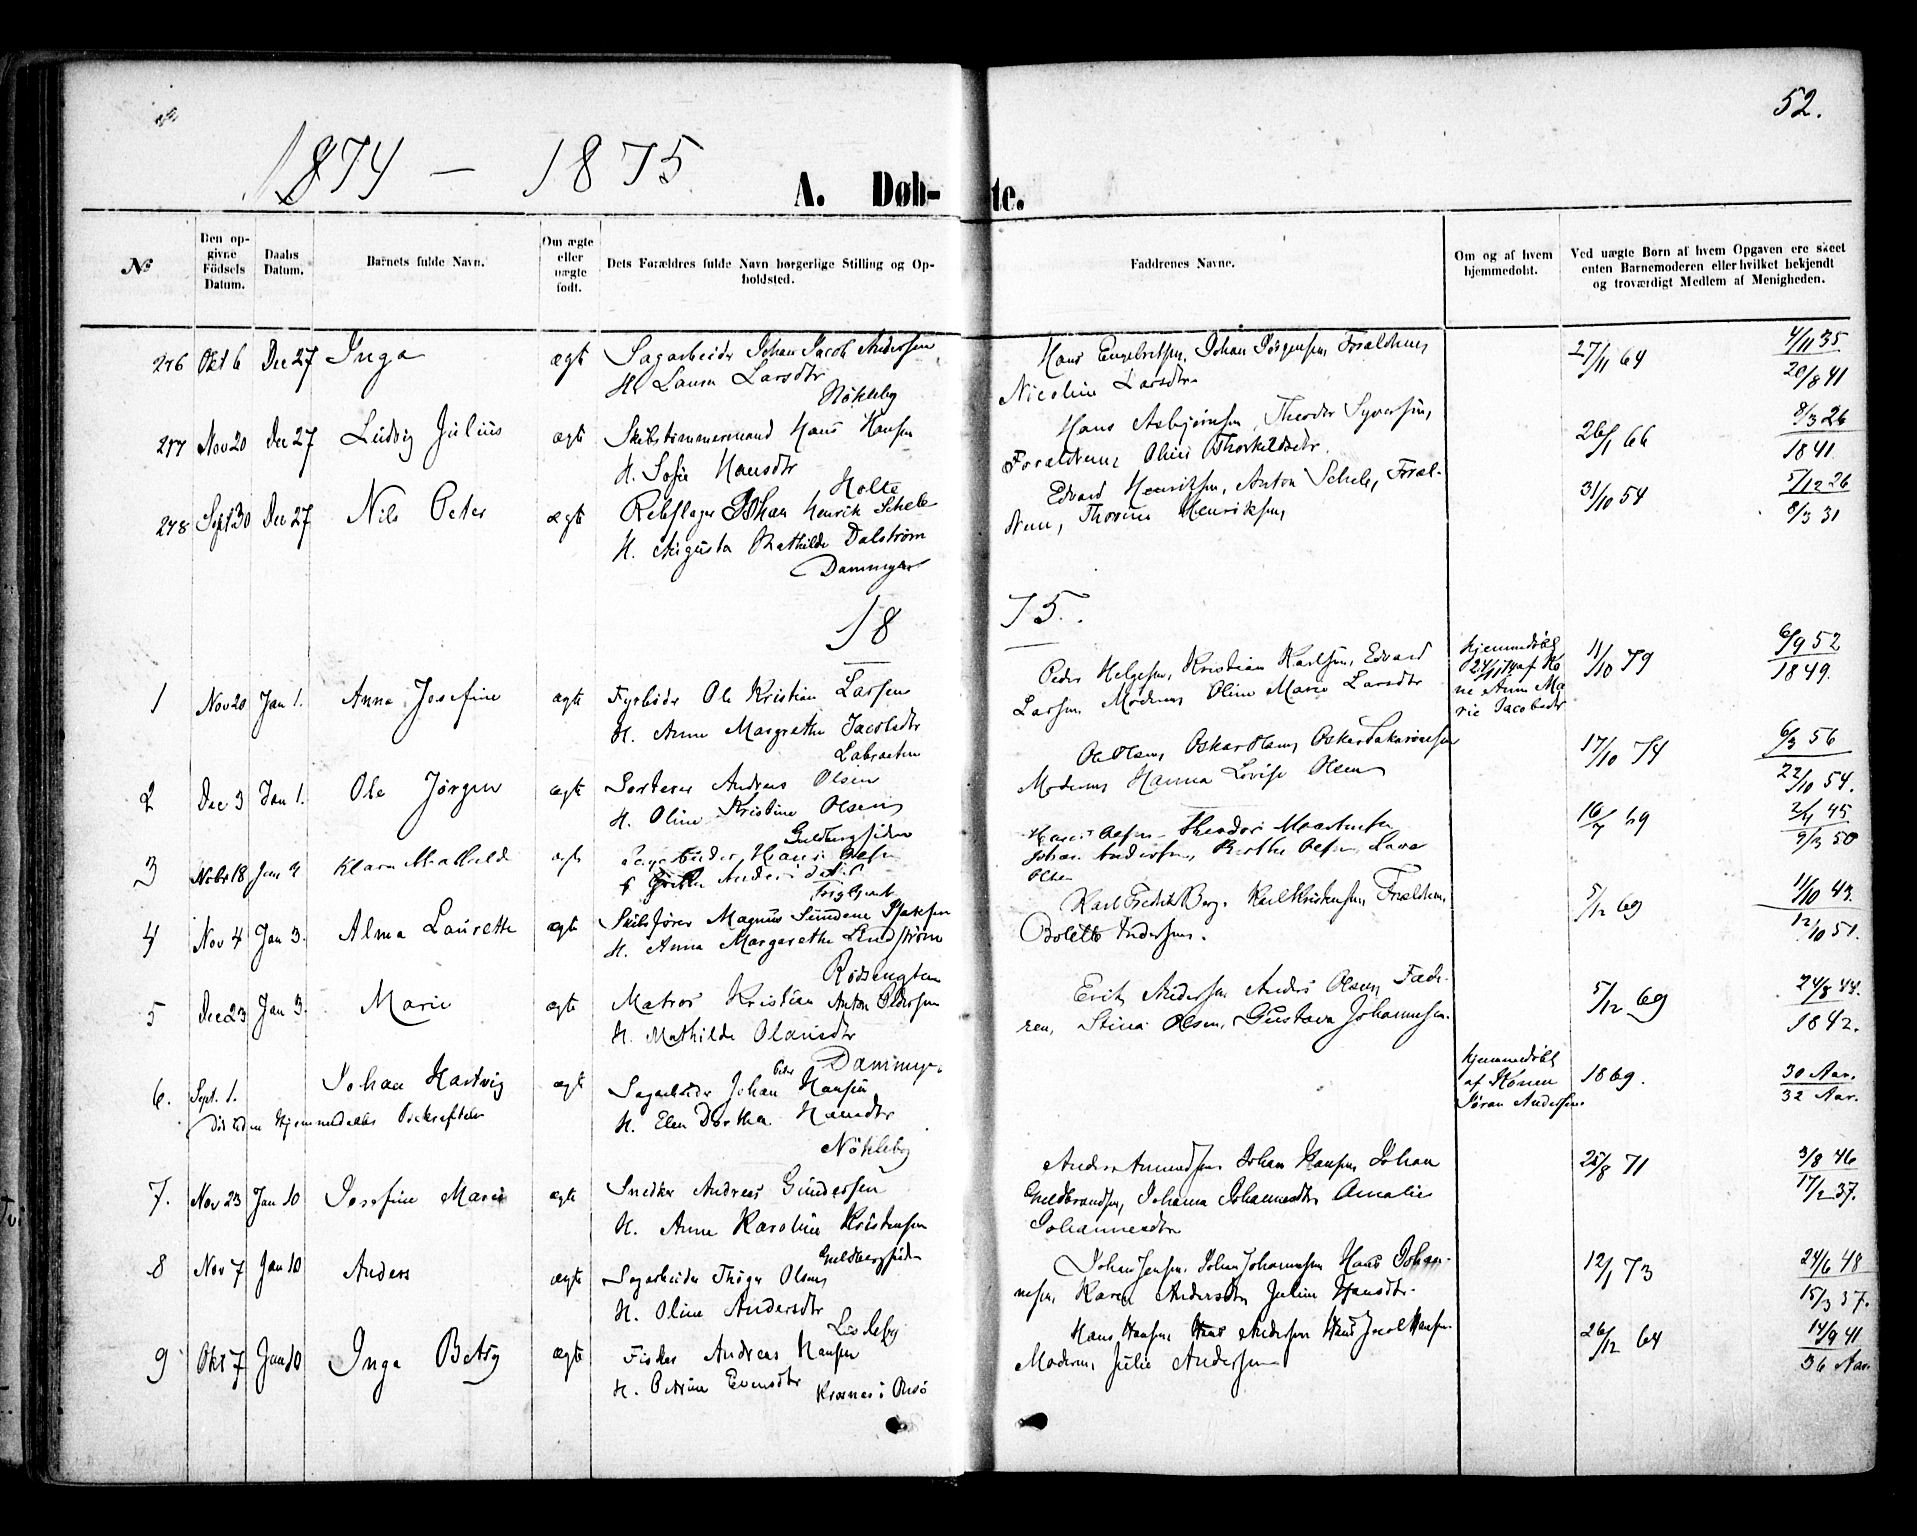 52.
1874 - 1875.
A. Døb- te.
No
Den op-
givne
Födsels
Datum.
Daabs
Datum.
Barnets fulde Navn.
Om ægte
eller
uægte
født.
Dets Forældres fulde Navn borgerlige Stilling og Op-
holdsted.
Faddrenes Navne.
Om og af hvem
hjemmedøbt.
Ved uægte Børn af hvem Opgaven ere skeet
enten Barnemoderen eller hvilket bekjendt
og troværdigt Medlem af Menigheden.
276 Okt 6 Dec 27 Inga ægte Sagarbeider Johan Jacob Andersen
H. Laura Larsdtr
Nökleby
Hans Engebretsen, Johan Jörgensen, Forældrene,
Nicoline Larsdtr
27/11 64
4/11 35
20/8 41
277 Nov 20 Dec 27 Ludvig Julius ægte Skibstömmermand Hans Hansen
H. Sofie Hansdtr
Holte
Hans Asbjørnsen, Theodor Syversen,
Forældrene, Oline Thorkildsdtr.
26/1 66
8/3 26
1841
278 Sept 30 Dec 27 Nils Peter ægte Rebslager Johan Henrik Schele
H. Augusta Mathilde Dalström
Dammyr
Edvard Henriksen, Anton Schele, Foræl-
drene, Thorine Henriksen,
31/10 54
5/12 26
8/3 31
18 75.
1 Nov 20 Jan 1. Anna Josefine ægte Fyrböder Ole Kristian Larsen
H. Anne Margrethe Jacobsdtr
Labraaten
Peder Helgesen, Kristian Karlsen, Edvard
Larsen, Moderen, Oline Marie Larsdtr
hjemmedöbt
24/11 74 af Ko
ne Anne Ma
rie Jacobsdtr
11/10 79
6/9 52
1849.
2 Dec 3 Jan 1. Ole Jørgen ægte Sorterer Andreas Olsen
H. Oline Kristine Olsen
Guldbergsiden
Ole Olsen, Oskar Olsen, Oskar Sakariasen
Moderen, Hanna Lovise Olsen
17/10 74
6/3 56
22/10 54.
3 Nobr 18 Jan Klara Mathilde ægte Hans Olsen
Hans Olsen Theodor
Johan Andersen, Berthe Olsen, Lava
Olsen
16/7 69
2/4 45
9/3 50
4 Nov 4 Jan 3. Alma Laurette ægte Skibsförer Magnus Sundene Isaksen
H. Anna Margarethe Lindström
Rödsengten
Karl Fredrik Berg, Karl Kristensen, Forældrene,
Bolette Andersen.
5/12 69
11/10 43.
12/10 51.
5 Dec 23 Jan 3. Marie ægte Matros Kristian Anton Pedersen
H. Mathilde Olausdtr
Dammyr.
Erik Andersen, Anders Olsen, Fade-
ren, Stina Olsen, Gustava Johannesen.
5/12 69
24/8 44.
1842.
6. Sept. 1. Johan Hartvig ægte Sagarbeider Johan Peter Hansen
H. Elen Dorthea Hansdtr
Nökleby
Död uden Hjemmedaabs Bekræftelse
hjemmedöbt
af Konen
Jöran Andersen.
1869.
30 Aar.
32 Aar.
7. Nov 23 Jan 10 Josefine Marie ægte Snedker Andreas Gundersen
H. Anne Karoline Kristensen
Guldbergsiden
Anders Amundsen, Johan Hansen, Johan
Guldbrandsen, Johanna Johannesdtr, Amalie
Johannesdtr
25/8 71
3/8 46
17/2 37.
8 Nov 7 Jan 10 Anders ægte Sagarbeider Thöger Olsen
H. Oline Andersdtr
Lisleby
Johan Jensen, Johan Johannesen, Hans Johan-
nesen, Karen Andersdtr, Juline Hansdtr.
12/1 73
24/6 48
15/3 37.
9 Okt 7 Jan 10 Inga Betsy ægte Fisker Andreas Hansen
H. Petrine Evensdtr
Krosnes i Onsö
Hans Hansen, Hans Andersen, Hans Jacob Hansen
Moderen, Julie Andersen
26/12 64
14/9 41
36 Aar.